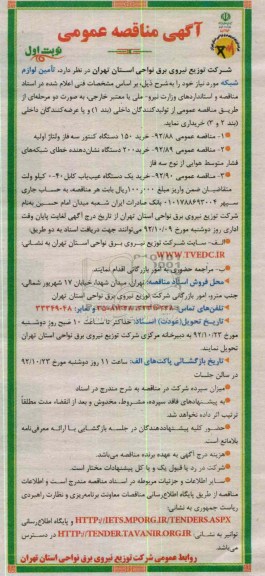 آگهی مناقصه عمومی
نوبت اول
شرکت توزیع نیروی برق نواحی استان تهران در نظر دارد، تأمین لوازم
شبکه مورد نیاز خود را به‌شرح ذیل، بر اساس مشخصات فنی اعلام شده در اسناد
مناقصه و استانداردهای وزارت نیرو- ملی یا معتبر خارجی، به صورت دو مرحله‌ای از
طریق مناقصه عمومی از تولیدکنندگان داخلی (بند ۱) و یا عرضه‌کنندگان داخلی
(بند ۲ و ۳) خریداری نماید.
۱- مناقصه عمومی ۹۲/۸۸- خرید ۱۵۰ دستگاه کنتور سه فاز ولتاژ اولیه
۲- مناقصه عمومی ۹۲/۸۹- خرید ۲۰۰ دستگاه نشان‌دهنده خطای شبکه‌های
فشار متوسط هوایی از نوع سه فاز
۳- مناقصه عمومی ۹۲/۹۰- خرید یک دستگاه عیب‌یاب کابل ۴۰-۰ کیلو ولت
متقاضیان ضمن واریز مبلغ ۱۰۰,۰۰۰ ریال بابت هر مناقصه، به حساب جاری
سپهر ۰۱۰۱۷۸۸۶۹۳۰۰۴ بانک صادرات ایران شعبه میدان امام حسین به‌نام
شرکت توزیع نیروی برق نواحی استان تهران از تاریخ درج آگهی لغایت پایان وقت
اداری روز دوشنبه مورخ ۹۲/۱۰/۰۹ می‌توانند جهت دریافت اسناد به دو طریق:
الف- سایت شرکت توزیع نیروی برق نواحی استان تهران به نشانی
WWW.TVEDC.IR
ب- مراجعه حضوری به امور بازرگانی اقدام نمایند.
محل فروش اسناد مناقصه: تهران، میدان شهدا، خیابان ۱۷ شهریور شمالی،
جنب مترو، امور بازرگانی شرکت توزیع نیروی برق نواحی استان تهران
تلفن‌های تماس: و نمابر: ۳۳۳۴۹۰۴۸
تاریخ تحویل (عودت) اسناد: حداکثر تا ساعت ۱۰ صبح روز دوشنبه
مورخ ۹۲/۱۰/۲۳ به دبیرخانه مرکزی شرکت توزیع نیروی برق نواحی استان تهران
تحویل نمایند.
تاریخ بازگشائی پاکت‌های الف: ساعت ۱۱ روز دوشنبه مورخ ۹۲/۱۰/۲۳
در سالن جلسات
میزان سپرده شرکت در مناقصه به شرح مندرج در اسناد
به پیشنهادهای فاقد سپرده، مشروط، مخدوش و بعد از انقضاء مدت مطلقاً
ترتیب اثر داده نخواهد شد.
حضور کلیه پیشنهاددهندگان در جلسه بازگشایی با ارائه معرفی‌نامه
بلامانع است.
هزینه درج آگهی به عهده برنده مناقصه می‌باشد.
شرکت در رد یا قبول یک و یا کل پیشنهادات مختار است.
سایر اطلاعات و جزئیات مربوطه در اسناد مناقصه مندرج است و اطلاعات
مناقصه از طریق پایگاه اطلاع‌رسانی مناقصات معاونت برنامه‌ریزی و نظارت راهبردی
ریاست جمهوری به نشانی:
HTTP://IETS.MPORG.IR/TENDERS.ASPX و پایگاه اطلاع‌رسانی
توانیر به نشانی: HTTP://TENDER.TAVANIR.ORG.IR در دسترس
می‌باشد.
روابط عمومی شرکت توزیع نیروی برق نواحی استان تهران